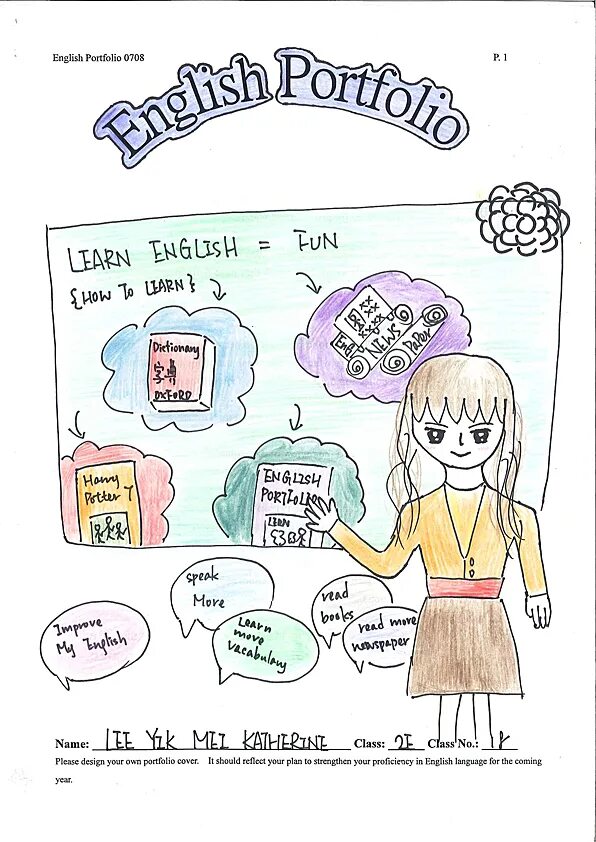 English Portfolio 0708
P. 1
English Portfolio
LEARN ENGLISH = FUN
{HOW TO LEARN}
Dictionary
字典
OXFORD
NEWS
PaPer
Harry
Potter 7
ENGLISH
PORTFOLIO
LEARN
speak
More
Improve
My English
Learn
more
vacabulary
read
books
read more
newspaper
Name: LEE YIK MEI KATHERINE Class: 2E Class No.: 18
Please design your own portfolio cover. It should reflect your plan to strengthen your proficiency in English language for the coming
year.